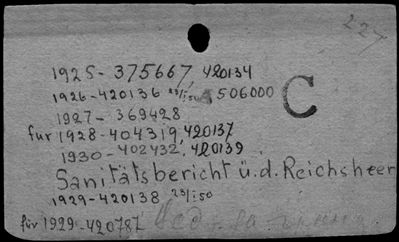 227
1925- 375667, 420134
1926-420136 23/I50 506000
C
1927- 369428
für 1928-404319, 420137
1930-402432, 420139
Sanitätsbericht ü.d. Reichsheer
1929-420138 23/I50
für 1929-420787